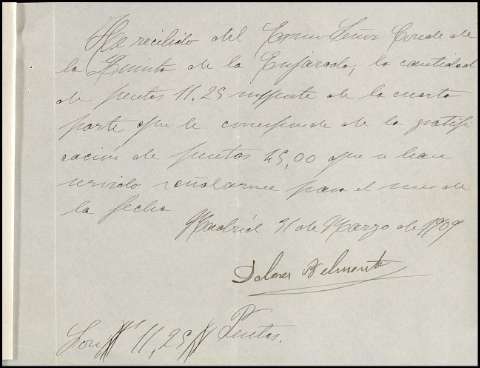 He recibido del Excmo Señor Conde de
la Quinta de la Enjarada, la cantidad
de pesetas 11,25 importe de la cuarta
parte que le corresponde de la gratifi
cación de pesetas 45,00 que se han
servido señalarme para el mes de
la fecha
Madrid 31 de Marzo de 1909
Dolores Belmonte
Son 11,25 Pesetas.